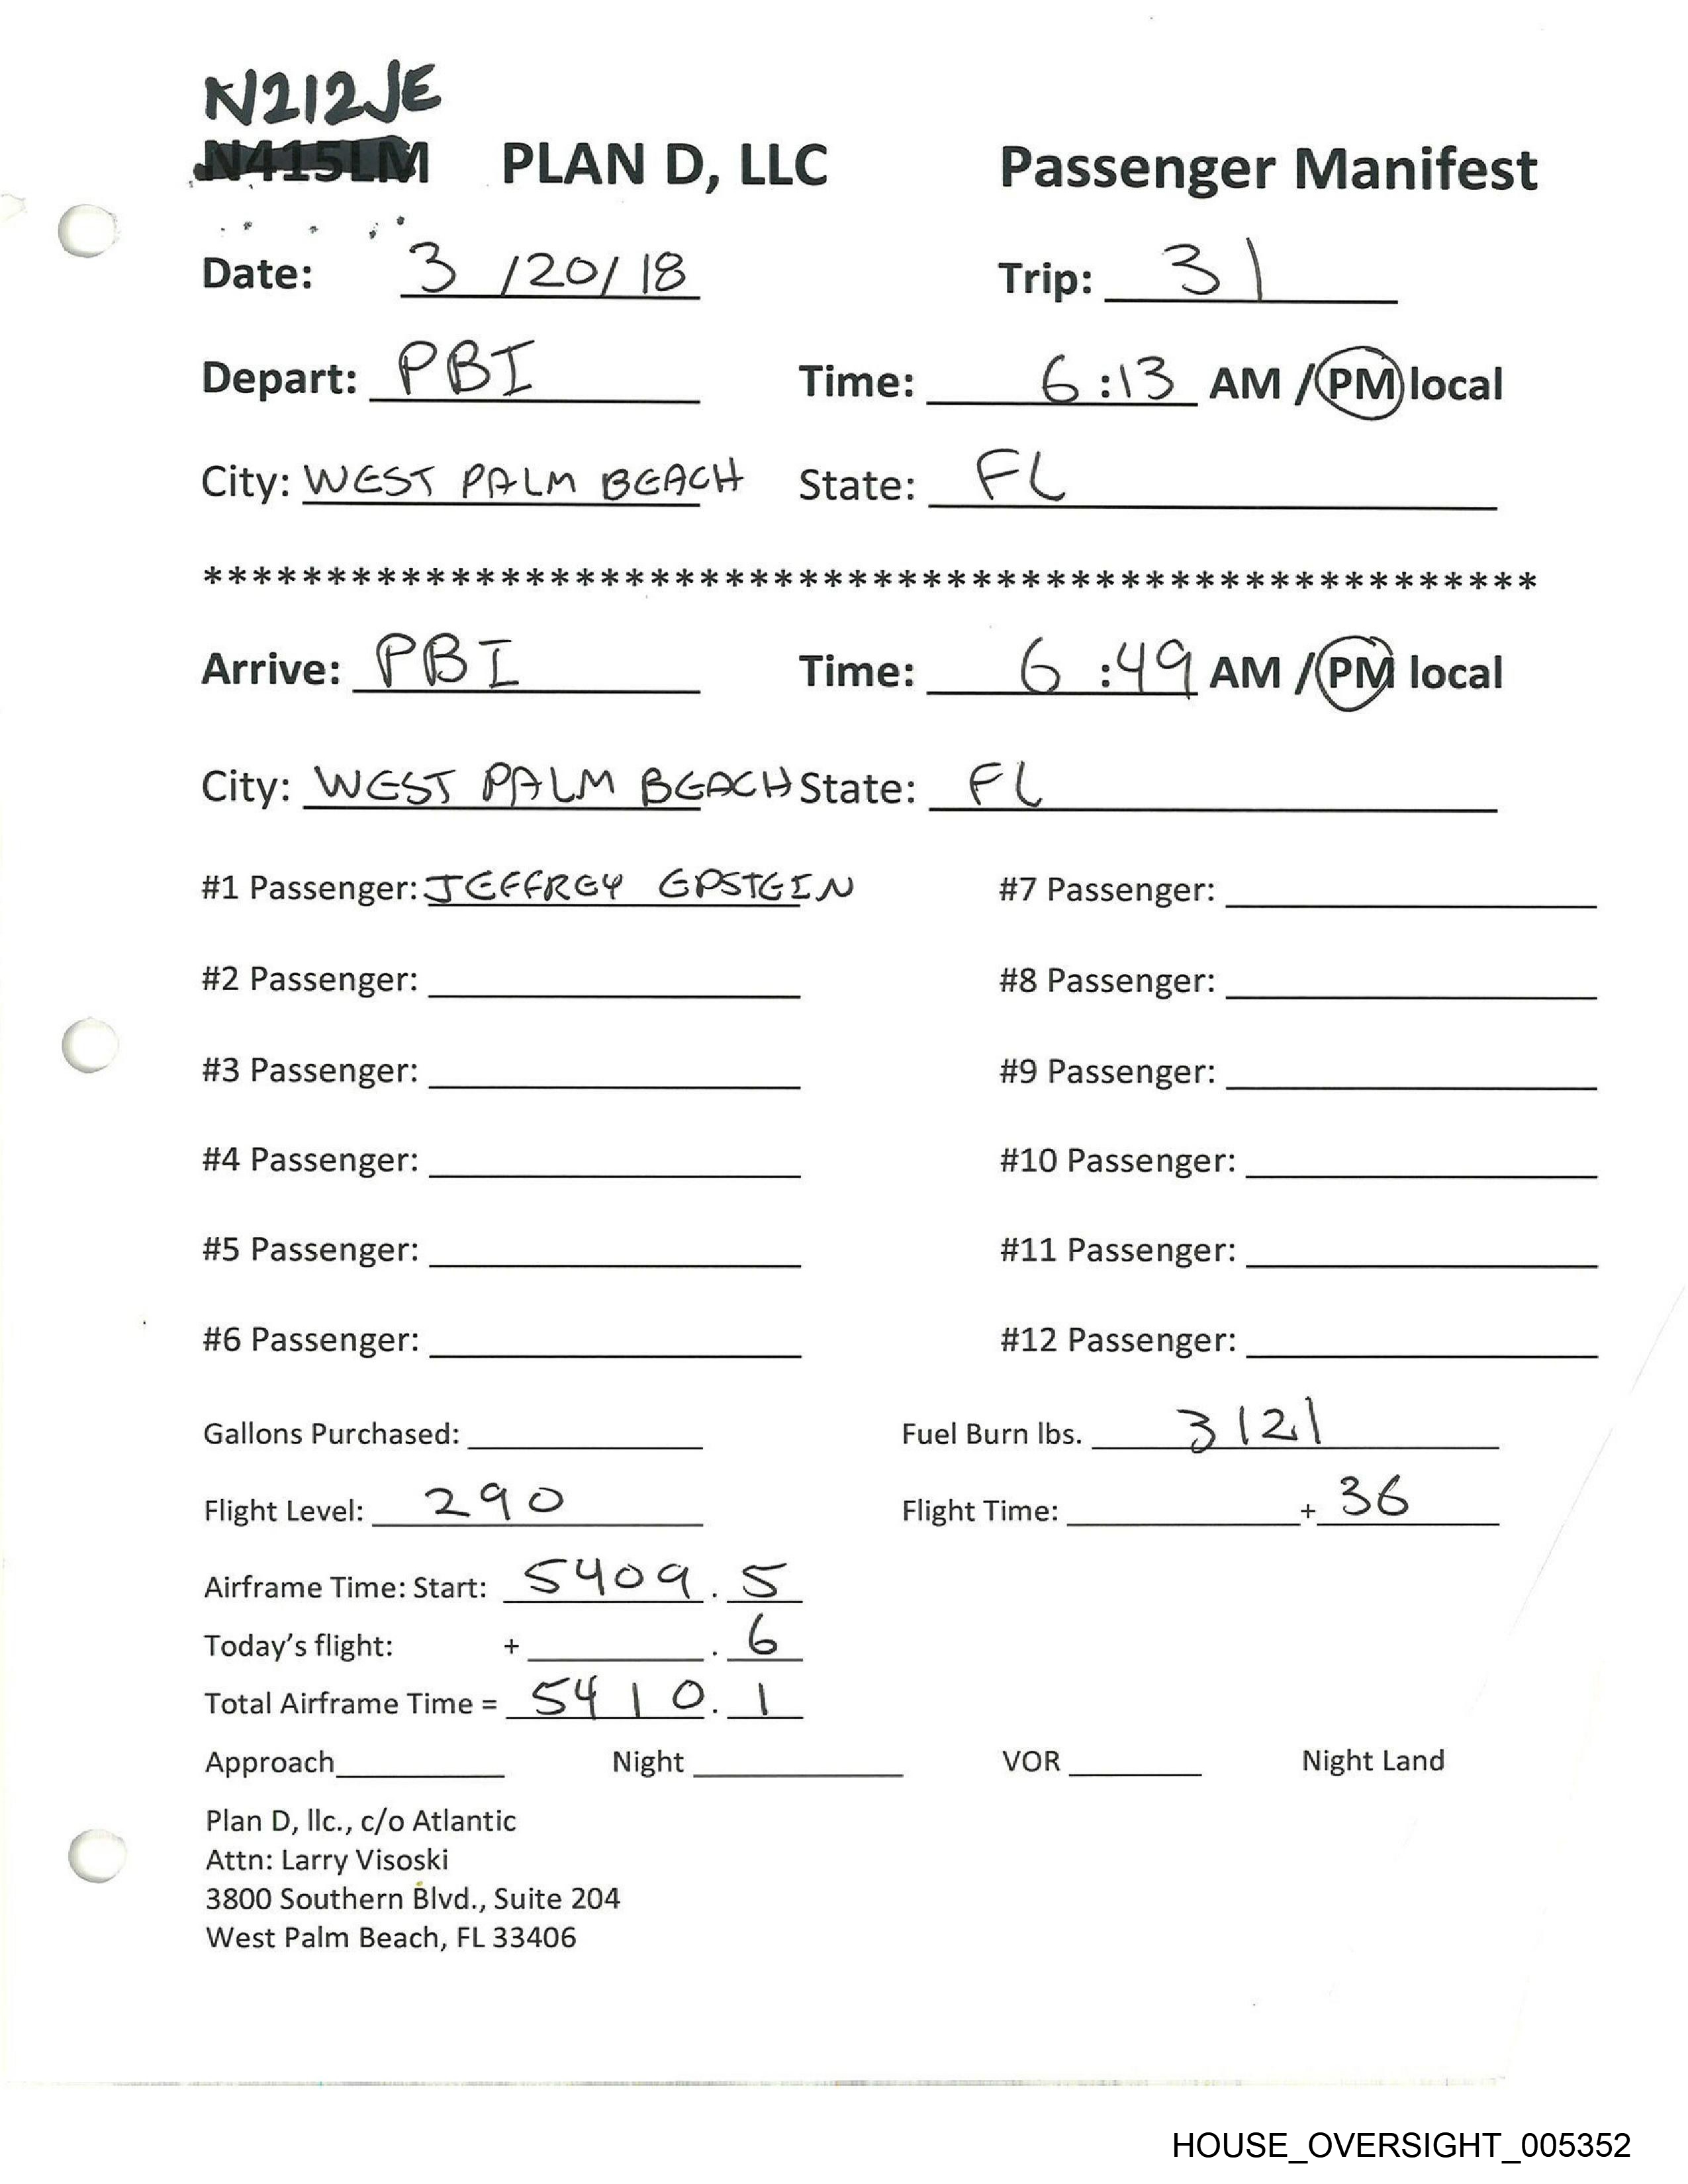 N212JE
N415LM PLAN D, LLC Passenger Manifest
Date: 3 /20/ 18 Trip: 31
Depart: PBI Time: 6 :13 AM / PM local
City: WEST PALM BEACH State: FL
******************************************************
Arrive: PBI Time: 6 :49 AM / PM local
City: WEST PALM BEACH State: FL
#1 Passenger: JEFFREY EPSTEIN #7 Passenger:
#2 Passenger: #8 Passenger:
#3 Passenger: #9 Passenger:
#4 Passenger: #10 Passenger:
#5 Passenger: #11 Passenger:
#6 Passenger: #12 Passenger:
Gallons Purchased: Fuel Burn lbs. 3121
Flight Level: 290 Flight Time: + 36
Airframe Time: Start: 5409 . 5
Today's flight: + . 6
Total Airframe Time = 5410 . 1
Approach Night VOR Night Land
Plan D, llc., c/o Atlantic
Attn: Larry Visoski
3800 Southern Blvd., Suite 204
West Palm Beach, FL 33406
HOUSE_OVERSIGHT_005352